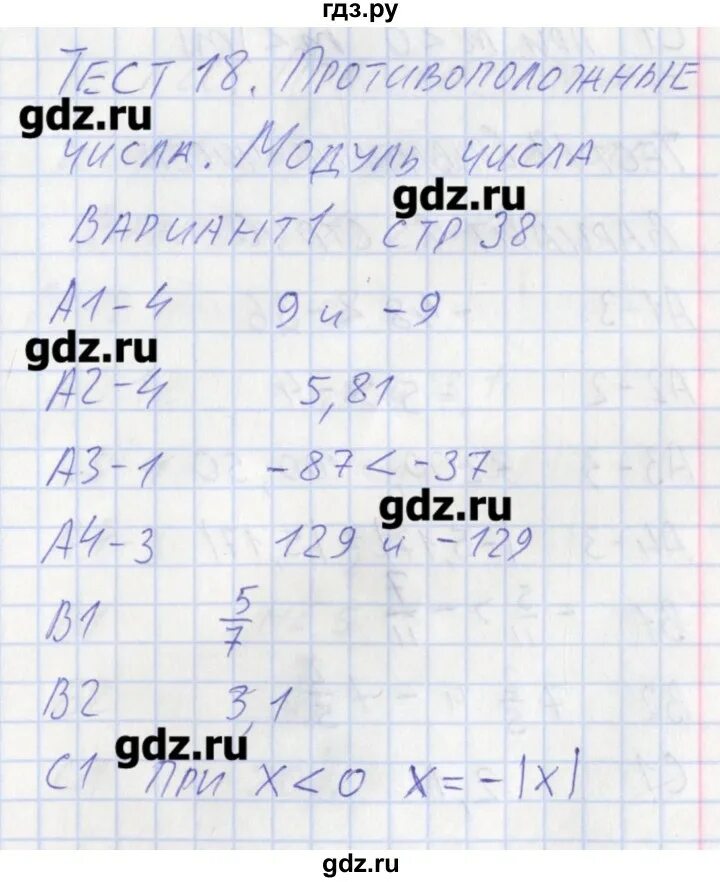 гдз.ру
Тест 18. Противоположные
gdz.ru
числа. Модуль числа
gdz.ru
Вариант 1 стр 38
А1-4 9 и -9
gdz.ru
А2-4 5,81
А3-1 -87<-37
gdz.ru
А4-3 129 и -129
В1 5/7
В2 3,1
gdz.ru
С1 при x<0 x=-|x|
gdz.ru